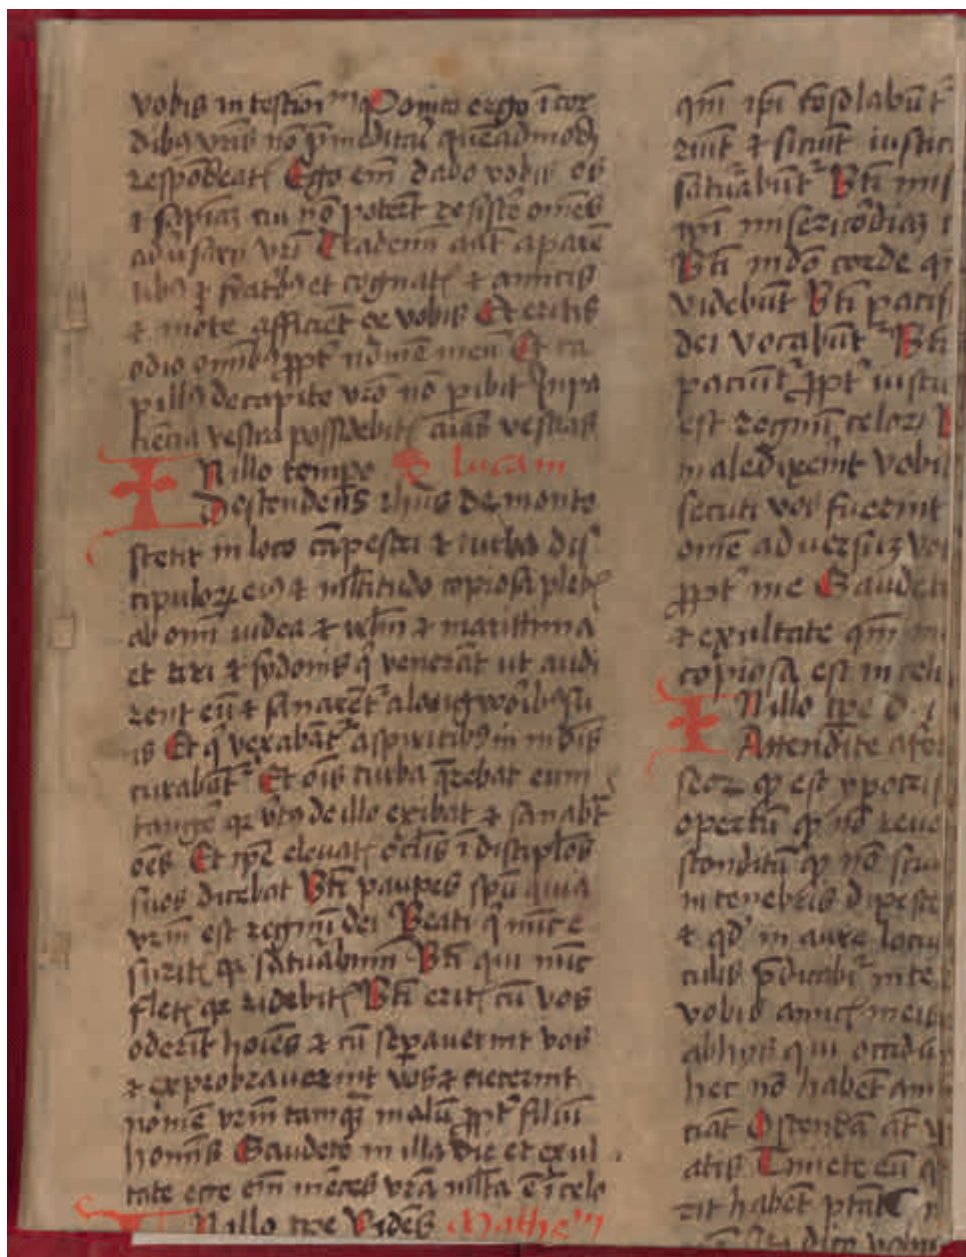 vobis in testīōnīm Ponite ergo ī cor
dibꝫ vr̄is nō p̄meditari queadmodū
respōdeatꝭ Ego em̄ dabo vobis os
⁊ sapiaꝫ cui nō poterūt resiste᷑ om̄es
adv̓sarij vr̄i Trademī aūt a parē
tibꝫ ⁊ fratribꝫ et cognatꝭ ⁊ amicis
⁊ morte afficiēt ex vobis Et eritis
odio om̄ibꝫ ꝓpt̓ nomē meū Et ca
pillꝰ de capite vr̄o nō ꝑibit In pa
tiēcia vestra possidebitꝭ aīas vestras
In illo tempore Lucam
Descendens ihūs de monte
stetit in loco cāpestri ⁊ turba dis
cipuloꝝ eiꝰ ⁊ ml̄titudo copiosa plebꝭ
ab omī iudea ⁊ ihrlm̄ ⁊ marittima
et tiri ⁊ sydonis q̄ venerāt ut audi
rent eū ⁊ sanarēt᷑ a languoribꝫ su
is Et q̄ vexabāt᷑ a spiritibꝫ inmūdis
curabāt᷑ Et oīs turba q̄rebat eum
tange᷑ qꝛ v̓tꝰ de illo exibat ⁊ sanabt
oēs Et ip̄e elevatꝭ oclīs ī discip̄los
suos dicebat Bt̄i paupes spū quia
vr̄m est regnū dei Beati q̄ nūc e
suritꝭ qꝛ saturabimī Bt̄i qui nūc
fletꝭ qꝛ ridebitꝭ Bt̄i eritꝭ cū vos
oderīt hoīes ⁊ cū sepaverint vos
⁊ exprobraverint vos ⁊ eiecerint
nomē vr̄m tamqꝫ malū ꝓpt̓ filiū
hominis Gaudete in illa die et exul
tate ecce em̄ m̄ces vr̄a ml̄ta ē ī celo
In illo tp̄e Videns Mathe
qm̄ ip̄i cōsolabūt᷑
riūt ⁊ siciūt iustici
saturabūt᷑ Bt̄i mis
qm̄ misericōdiaꝫ
Bt̄i mūdo corde qm̄
videbūt Bt̄i pacif
dei vocabūt᷑ Bt̄i
paciūt᷑ ꝓpt̓ iustic
est regnū celoꝝ
maledixerint vobis
secuti vos fuerint
om̄e adversuꝫ vos
ꝓpt̓ me Gaudete
⁊ exultate qm̄
copiosa est in celis
In illo tp̄e d.
Attendite a fer
seoꝝ qd̄ est ypocris
opertū qd̄ nō reve
sconditū qd̄ nō scia
in tenebris dixist
⁊ qd̄ in aure locuti
culis p̄dicabit᷑ in te
vobis amicꝭ meis
ab hijs qui occidūt
hec nō habēt am
ciāt Ostendā aūt v
obis Timete eū q
rit habēt p̄tātē
dico vobis